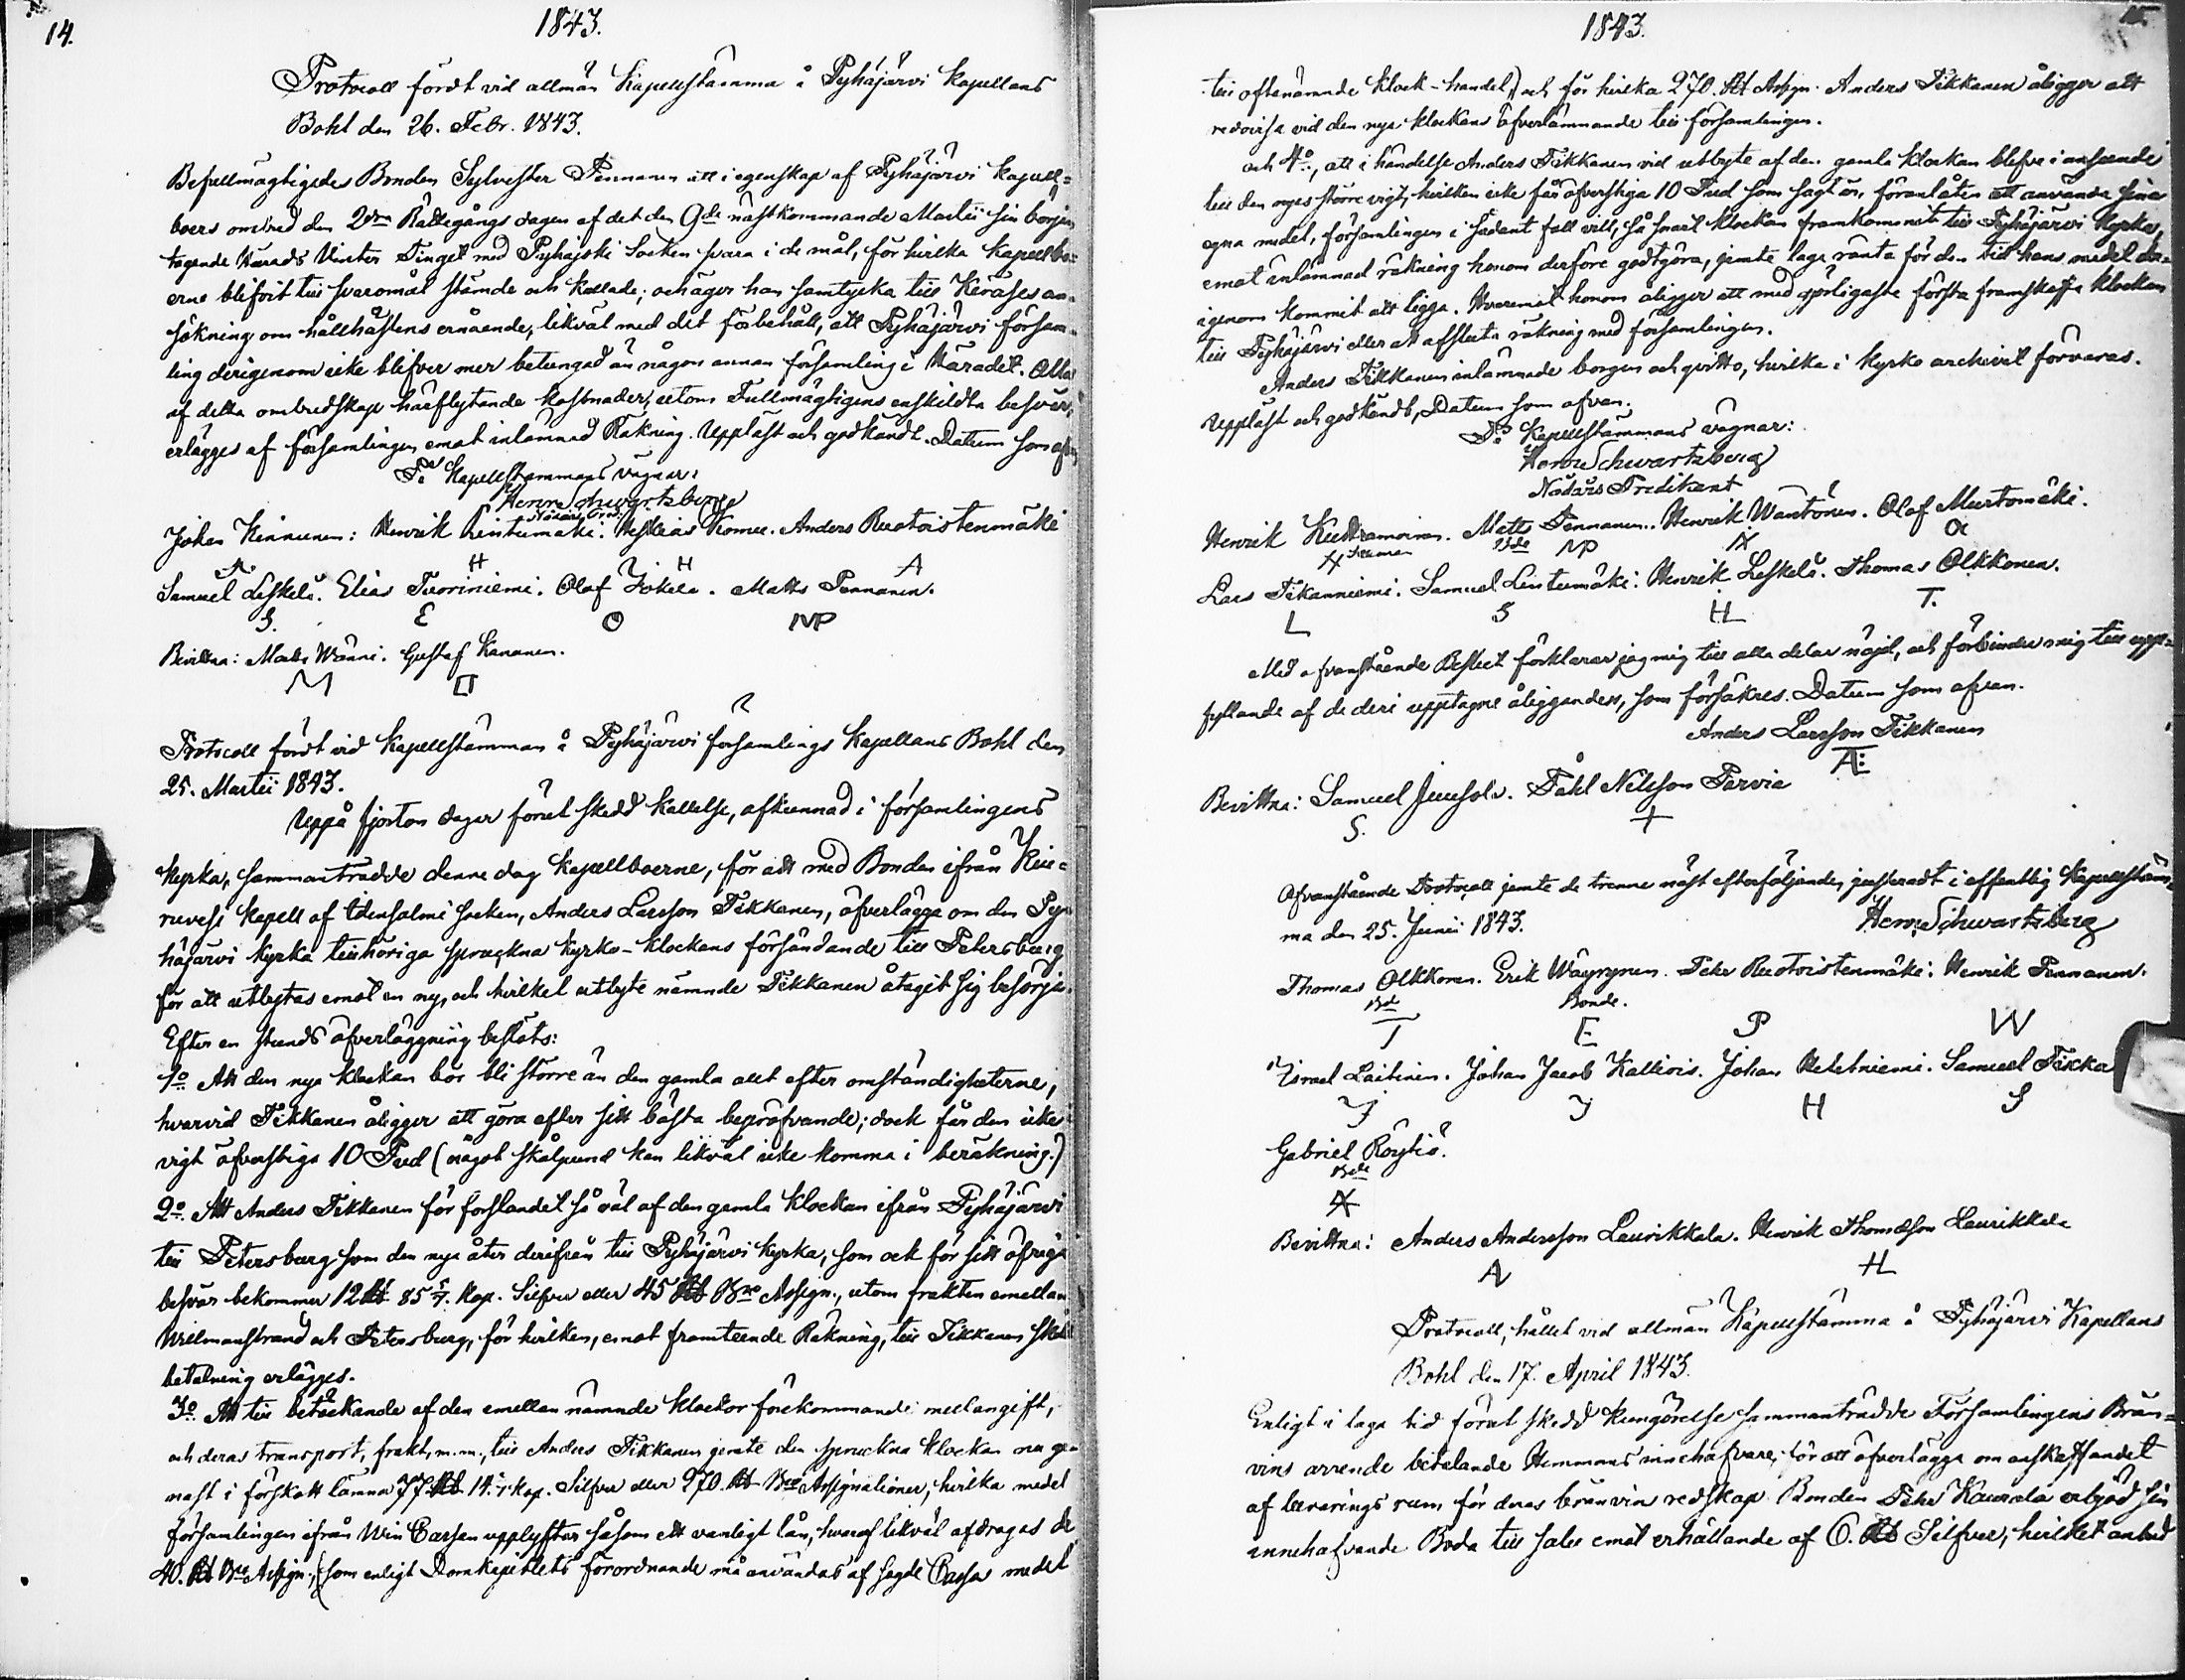 14.
1843.
Protocoll fördt vid allmän Kapellstämma å Pyhäjärvi Kapellans
Bohl den 26. Febr. 1843.
Befullmägtigedes Bonden Sylvester Pennanen att i egenskap af Pyhäjärvi Kapell-
boers ombud den 2dra Rättegångs dagen af det den 9de nästkommande Martii sin början
tagande Härads Vinter Tinget med Pyhäjoki Socken svara i de mål, för hvilka Kapellbo-
erne blifvit till svaromål stämde och kallade; och äger han samtycka till an-
sökning om hållhästens ernående, likväl med det förbehåll, att Pyhäjärvi försam-
ling derigenom icke blifver mer betungad än någon annan församling i Häradet. Alla
af detta ombudskap härflytande kostnader, utom Fullmägtigens enskildta besvär,
erlägges af församlingen emot inlämnad Räkning. Uppläst och godkändt. Datum som ofvan
På Kapellstämmans vägnar:
Henr. Schwartzberg
Nådårs Pred.
Johan Kinnunen: Henrik Lintumäki. Komu. Anders Ruotoistenmäki
H H A
Samuel Leskelä. Elias Tuoriniemi. Olof Jokela. Matts Pennanen.
S. E O MP
Bevittna: Matts Wänni. Gustaf Kananen.
M
Protocoll fördt vid Kapellstämman å Pyhäjärvi församlings Kapellans Bohl den
25. Martii 1843.
Uppå fjorton dagar förut skedd kallelse, afkunnad i församlingens
Kyrka, sammanträdde denna dag Kapellboerne, för att med Bonden ifrån Kiu-
ruvesi Kapell af Idensalmi Socken, Anders Larsson Tikkanen, öfverlägga om den Py-
häjärvi Kyrka tillhöriga spruckna Kyrko-klockans försändande till Petersburg
för att utbytas emot en ny, och hvilket utbyte nämnde Tikkanen åtagit sig besörja.
Efter en stunds öfverläggning beslöts:
1o. Att den nya klockan bör bli större än den gamla allt efter omständigheterne,
hvarvid Tikkanen åligger att göra efter sitt bästa bepröfvande; dock får den icke i
vigt öfverstiga 10 Pud (något skålpund kan likväl icke komma i beräkning.)
2o. Att Anders Tikkanen för forslandet så väl af den gamla klockan ifrån Pyhäjärvi
till Petersburg som den nya åter derifrån till Pyhäjärvi Kyrka, som ock för sitt öfriga
besvär bekommer 12 Rb 85 5/7. Kop. Silfver eller 45 Rb Bco Assign., utom frakten emellan
Willmanstrand och Petersburg, för hvilken, emot framteende Räkning, till Tikkanen skild
betalning erlägges.
3o Att till betäckande af den emellan nämnde klockor förekommande mellangift,
och deras transport, frakt, m.m., till Anders Tikkanen jemte den spruckna klockan nu ge-
nast i förskott lämna 77 Rb 14. Kop. Silfver eller 270. Rb Bco Assignationer, hvilka medel
församlingen ifrån Win Cassan upplyfter såsom ett vanligt lån, hvaraf likväl afdrages de
40. Rb Bco Assign., (som enligt Domkapitlets förordnande må användas af sagde Cassa medel
15.
1843.
till oftanämnde klock-handel) och för hvilka 270. Rb Assign. Anders Tikkanen åligger att
redovisa vid den nya klockans öfverlämnande till församlingen.
och 4o., att i händelse Anders Tikkanen vid utbyte af den gamla klockan blefve i anseende
till den nyas större vigt, hvilken icke får öfverstiga 10 Pud som sagt är, föranlåten att använda sina
egna medel, församlingen i sådant fall vill, så snart klockan framkommit till Pyhäjärvi Kyrka,
emot inlämnad räkning honom derföre godtgöra, jemte laga ränta för den tid hans medel der-
igenom kommit att ligga. Hvaremot honom åligger att med görligaste första framskaffa klockan
till Pyhäjärvi eller att afsluta räkning med församlingen.
Anders Tikkanen inlämnade borgen och qvitto, hvilka i Kyrko archivet förvaras.
Uppläst och godkändt, Datum som ofvan.
På Kapellstämmans vägnar:
Henr. Schwartzberg
Nådårs Predikant
Henrik Matts Pennanen. Henrik Wäntönen. Olof Murtomäki.
Lars Tikanniemi. Samuel Lintumäki. Henrik Leskelä. Thomas Olkkonen.
L S H T.
Med ofvanstående Beslut förklarar jag mig till alla delar nöjd, och förbinder mig till upp-
fyllande af de deri upptagne åligganden, som försäkras. Datum som ofvan.
Anders Larsson Tikkanen
A:
Bevittna: Samuel Junsola. Påhl Nilsson Parvia
S. +
Ofvanstående Protocoll jemte de trenne näst efterföljande, justeradt i offentlig Kapellstäm-
ma den 25. Junii 1843. Henr. Schwartzberg
Thomas Olkkonen. Erik Wäyrynen. Pehr Ruotoistenmäki: Henrik Pennanen.
Bde Bonde.
T E P W
Israel Laitinen. Johan Jacob Kallivis. Johan Vehtniemi. Samuel Tikka
J J H S
Gabriel Röytiö.
Bde
Bevittna: Anders Andersson Laurikkala. Henrik Thomasson Laurikkala
A H
Protocoll, hållet vid allmän Kapellstämma å Pyhäjärvi Kapellans
Bohl den 17. April 1843.
Enligt i laga tid förut skedd kungörelse sammanträdde Församlingens Brän-
vins arrende betalande Hemmans innehafvare, för att öfverlägga om anskaffandet
af bevarings rum för deras bränvins redskap. Bonden Pehr Kaurala erbjöd sin
innehafvande Boda till salu emot erhållande af 6. Rb Silfver, hvilket anbud